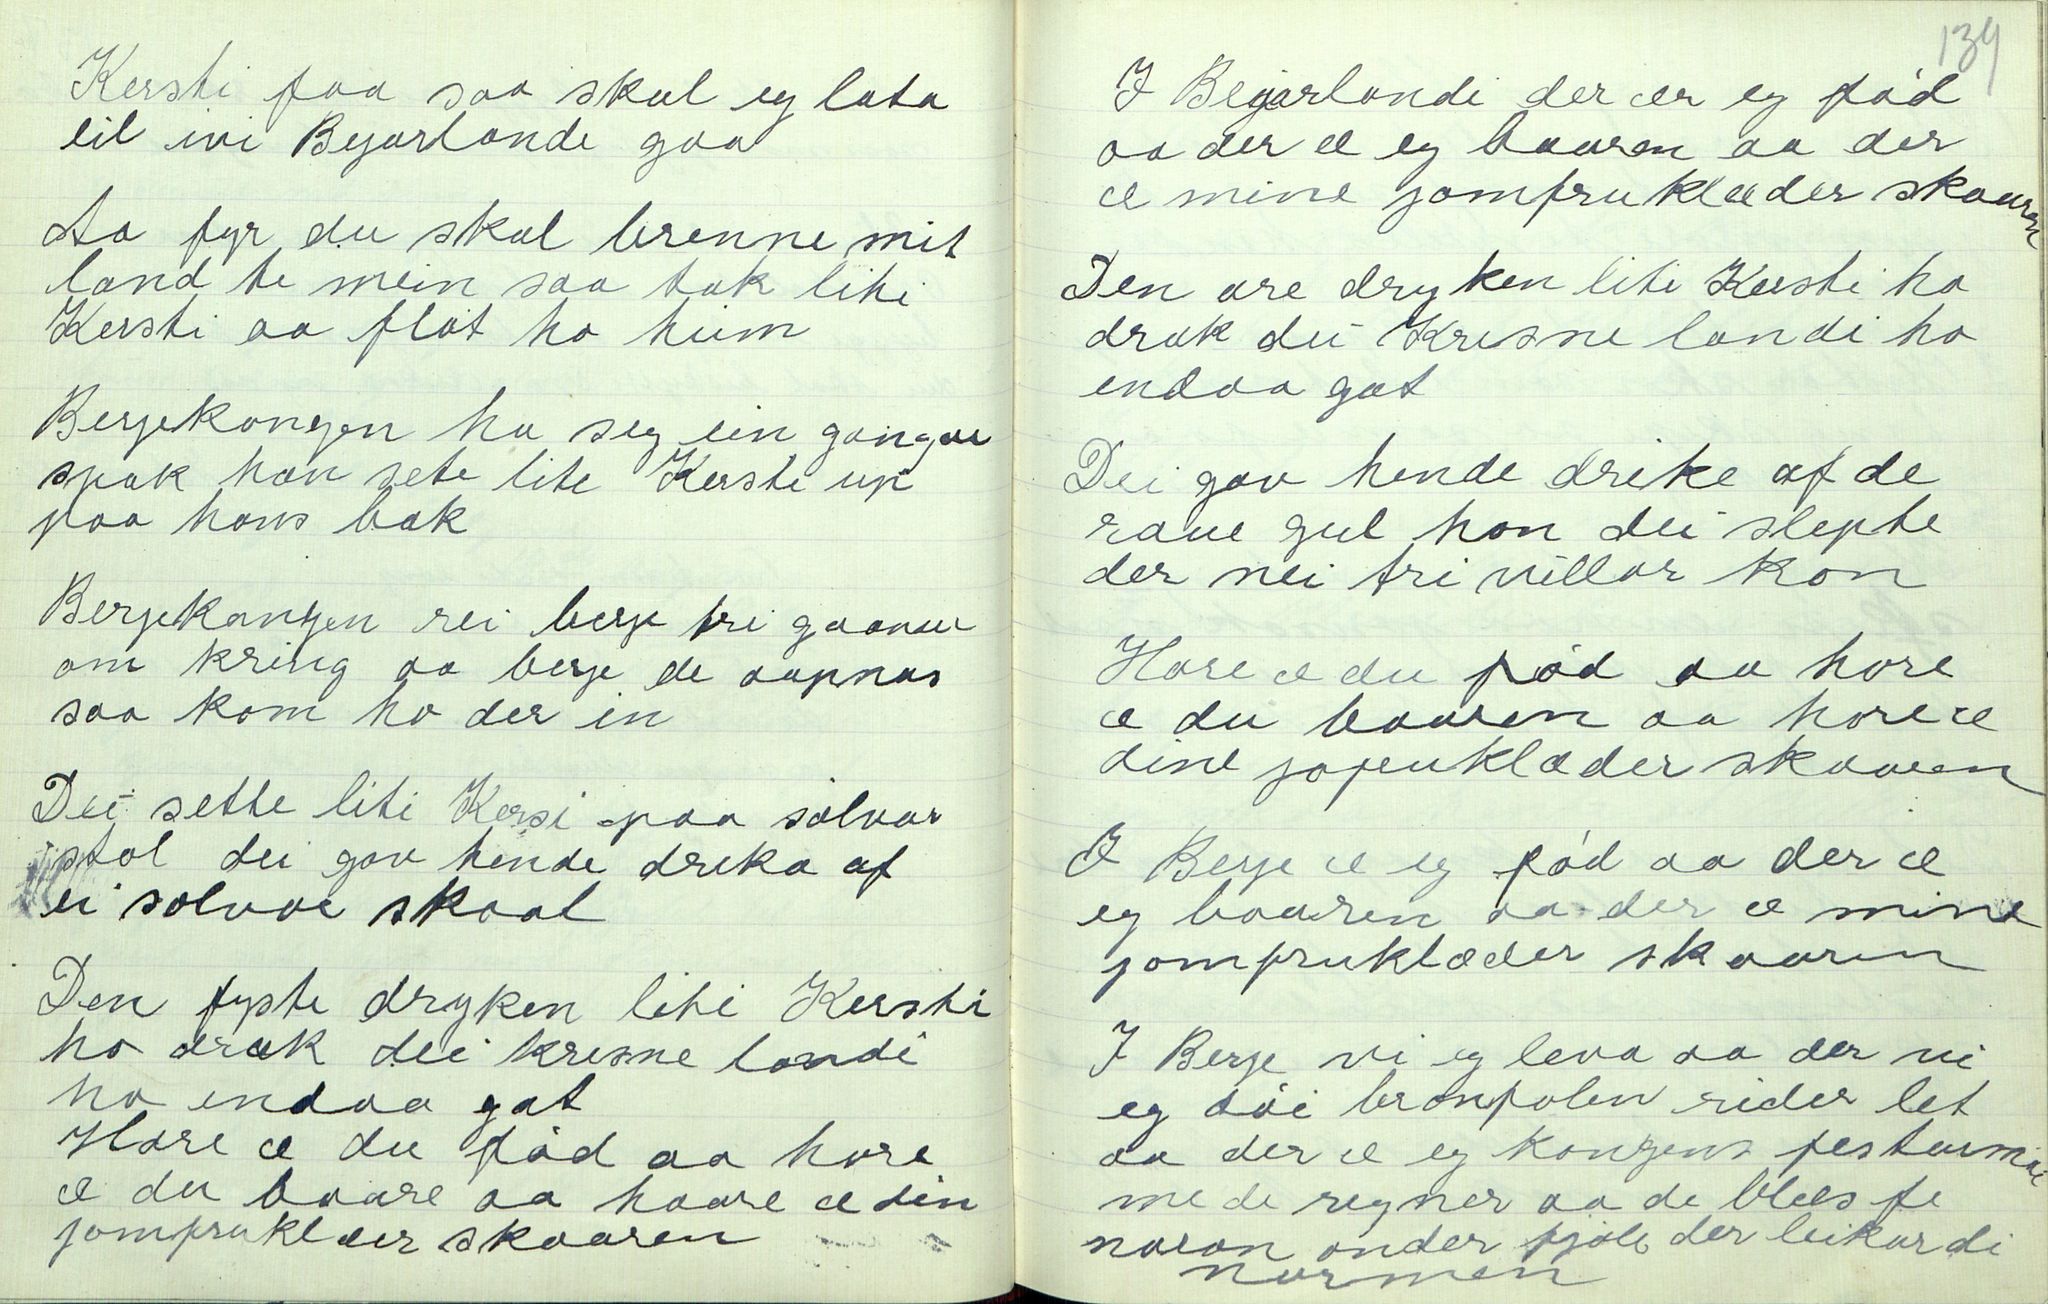 Kersti faa saa skal eg lata
eil ivi Bejarlande gaa
Aa fyr du skal brenne mit
land te mein saa tak liti
Kersti aa flöt ho heim
Berjekongen ha seg ein gangar
spak han sete lite Kerste up
paa hans bak
Berjekongen rei berje tri gaaner
om kring aa berje de aapnas
saa kom ho der in
Dei sette liti Kersi paa sölvar
stol dei gav hende dreka af
ei solvar skaal
Den fyste dryken liti Kersti
ho drak dei kresne landi
ho endaa gat
Hore æ du född aa hore
æ du baare aa haare æ din
jomfruklæer skaaren
139
I Bejarlandi der ær eg föd
aa der æ eg baaren aa der
æ mine jomfruklæder skaaren
Den are dryken liti Kersti ho
drak dei Kresne landi ho
endaa gat
Dei gav hende drike af de
raue gul hon dei slepte
der nei tri villar kon
Hore æ du föd aa hore
æ du baaren aa hore æ
dine jofruklæder skaaren
I Berje æ eg föd aa der æ
eg baaren aa der æ mine
jomfruklæder skaaren
I Berje vi eg leva aa der vi
eg döi bronfolen rider let
aa der æ eg kongens festarmöi
me de regner aa de blæs fe
noron onder fjöle der leikar di
normen